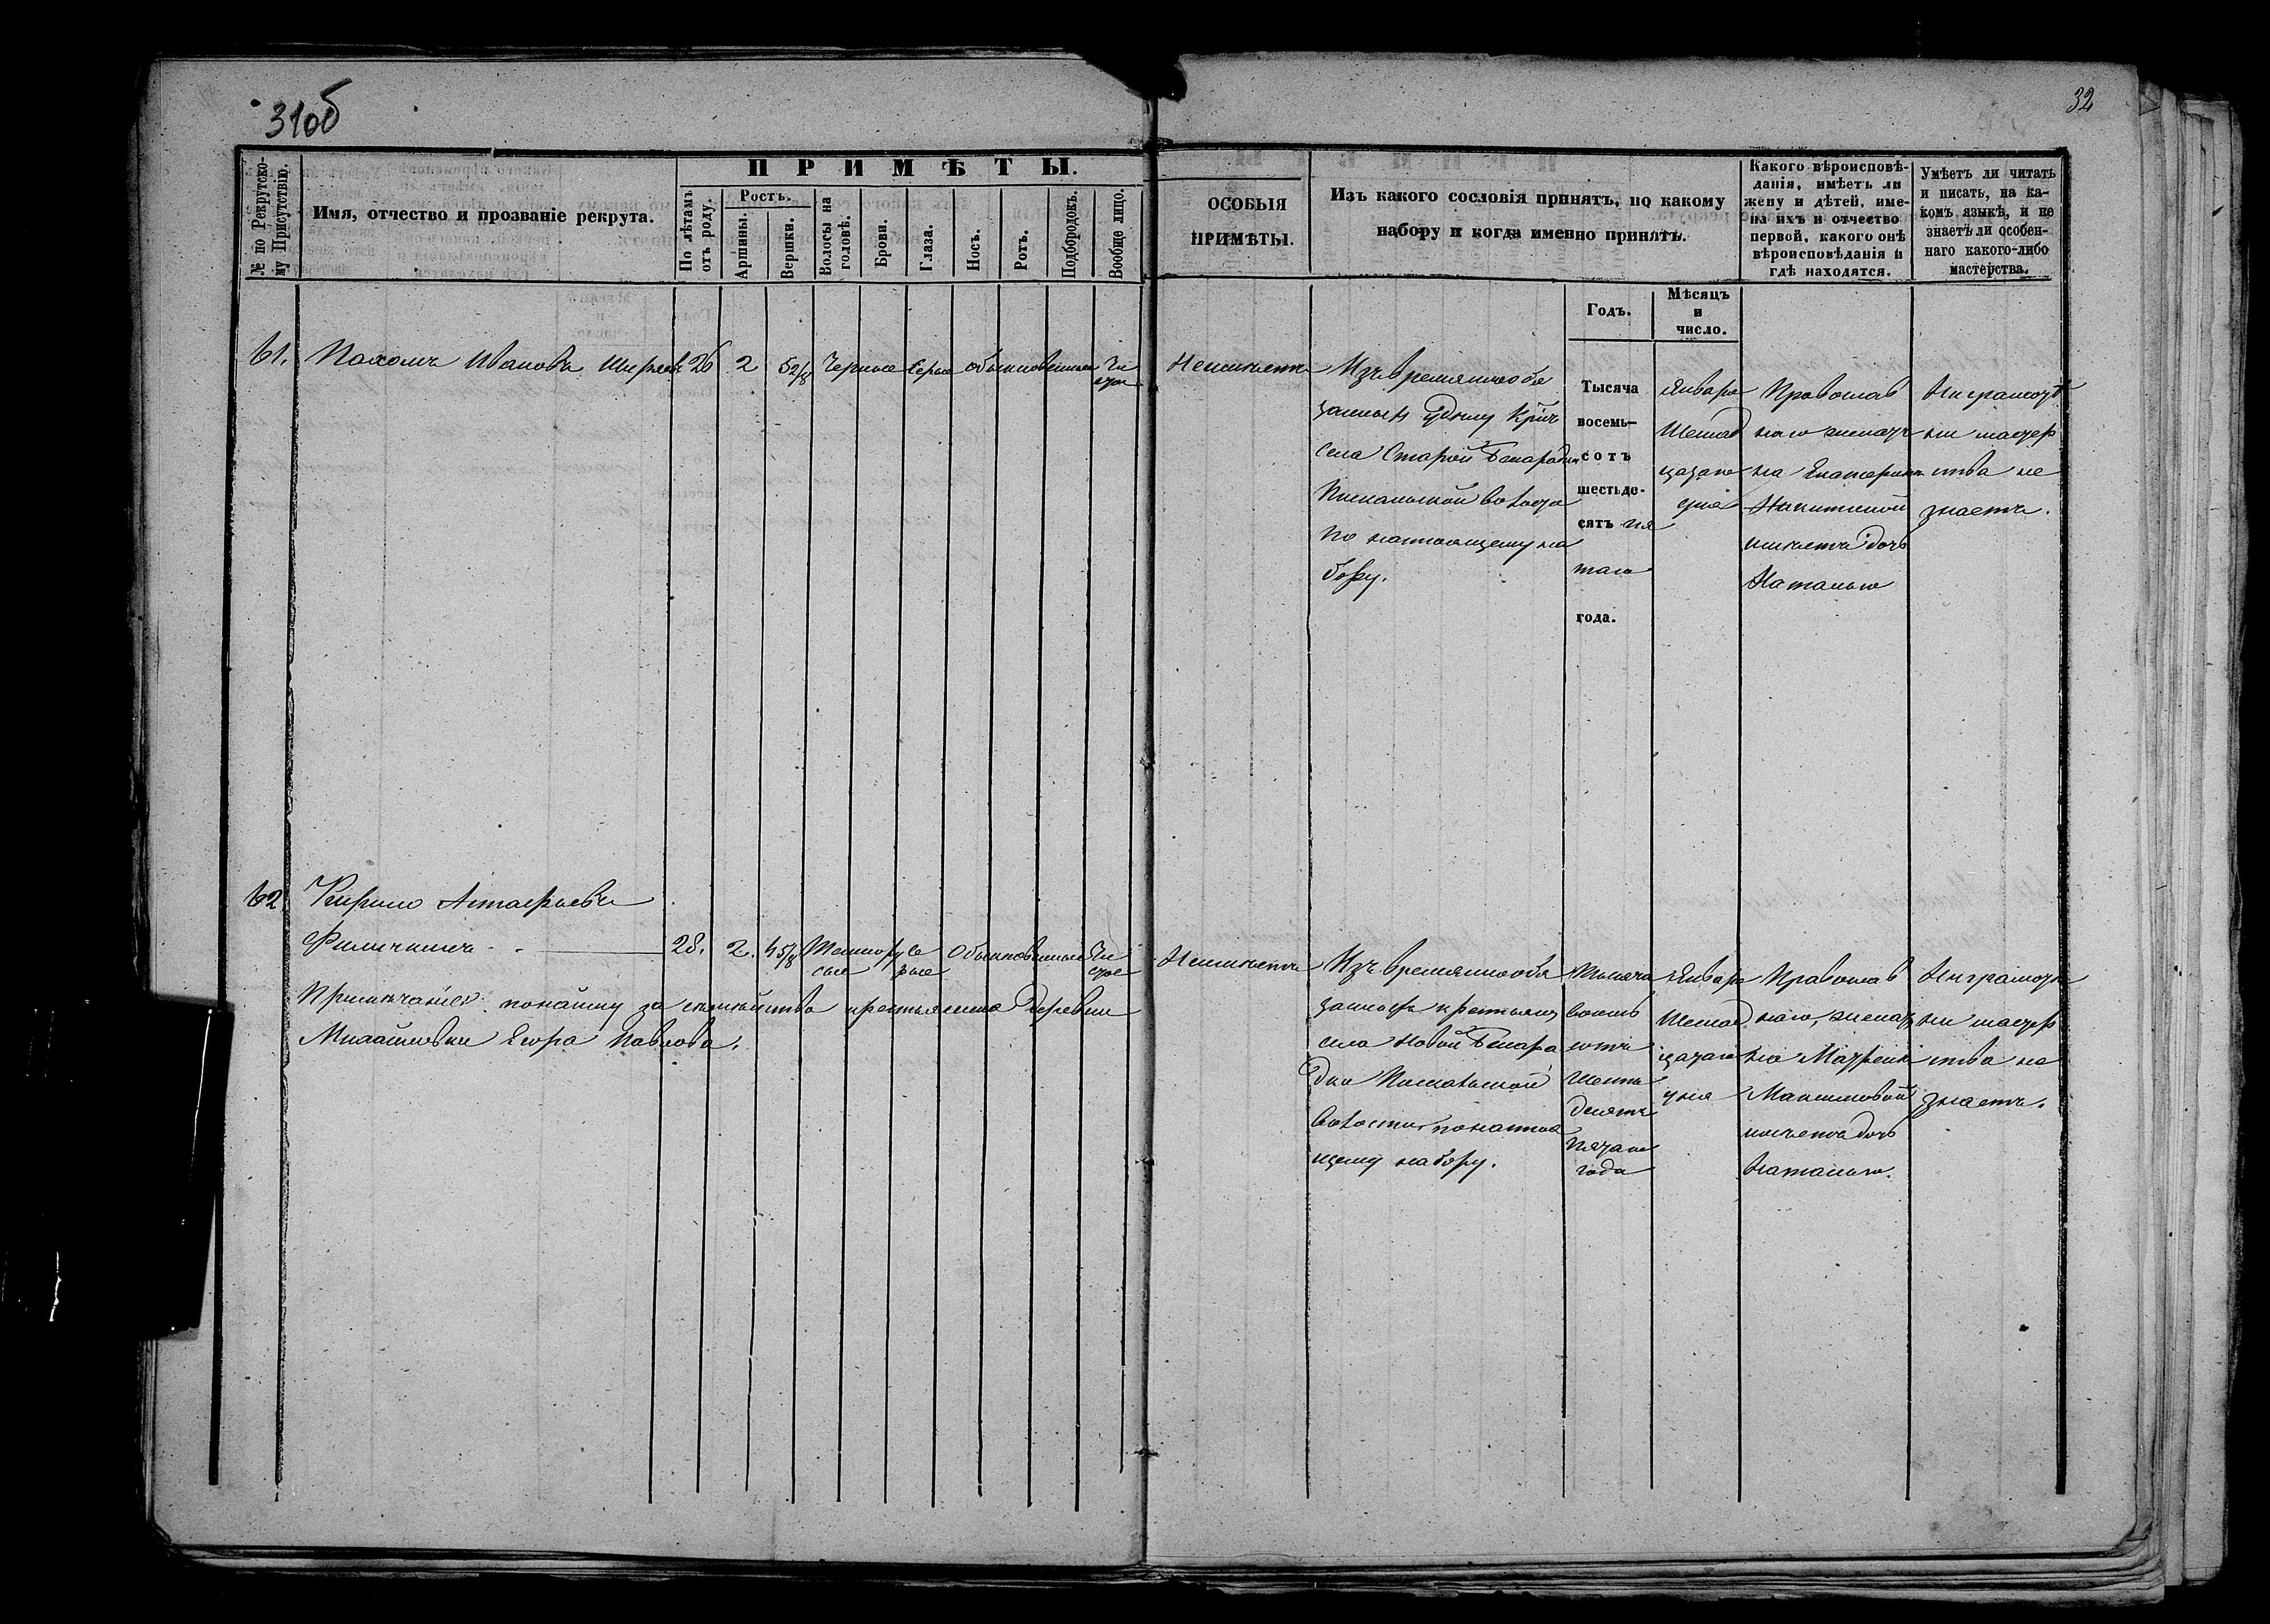 31об
32
№ по Рекрутско-
му Присутствію.
Имя, отчество и прозваніе рекрута.
ПРИМѢТЫ.
По лѣтамъ
отъ роду.
Ростъ.
Аршины.
Вершки.
Волосы на
головѣ.
Брови.
Глаза.
Носъ.
Ротъ.
Подбородокъ.
Вообще лицо.
ОСОБЫЯ
ПРИМѢТЫ.
Изъ какого сословія принятъ, по какому
набору и когда именно принятъ.
Годъ.
Мѣсяцъ
и
число.
Какого вѣроисповѣ-
данія, имѣетъ ли
жену и дѣтей, име-
на ихъ и отчество
первой, какого онѣ
вѣроисповѣданія и
гдѣ находятся.
Умѣетъ ли читать
и писать, на ка-
комъ языкѣ, и не
знаетъ ли особен-
наго какого-либо
мастерства.
61. Пахомъ Ивановъ Ширяевъ 26 2 5 2/8 Черные Серые обыкновенные Чи
стое
Неимѣетъ
Изъ временнообя
занныхъ
села Старой Бинарадки
волости
по настоящему на
бору.
Тысяча
восемь-
сотъ
шестьде-
сятъ пя
таго
года.
Января
Шестнад
цатаго
дня
Православ
наго женатъ
на Екатерине
Никитиной
имѣетъ дочь
Наталью
Неграмотѣ
ни мастер
ства не
знаетъ.
62 Кирило Астафьевъ
Филичкинъ 28. 2. 4 5/8 Темнору Се
сые рые Обыкновенные Чи
стое
Примѣчаніе: понайму за семѣйство крестьянина деревни
Михайловки Егора Павлова.
Неимѣетъ
Изъ временнообя
занныхъ крестьянъ
села Новой Бинара
дки
волости понастоя
щему набору.
Тысяча
восемь
сотъ
шесть
десятъ
пятаго
года
Января
Шестнад
цатаго
дня
Православ
наго, женатъ
на Матрене
Максимовой
имѣетъ дочь
Наталью.
Неграмотѣ
ни мастер
ства не
знаетъ.